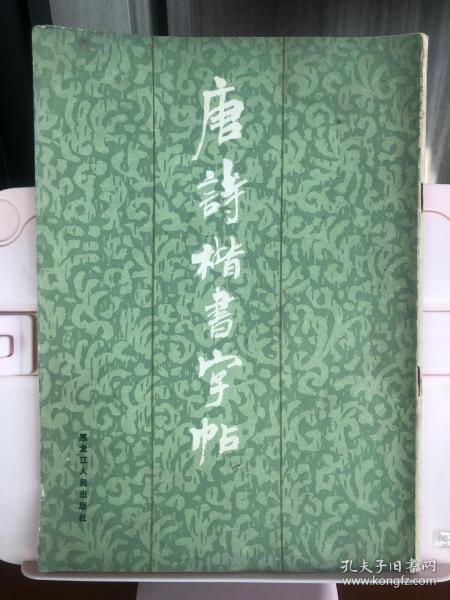 唐詩楷書字帖
黑龙江人民出版社
孔夫子旧书网
www.kongfz.com